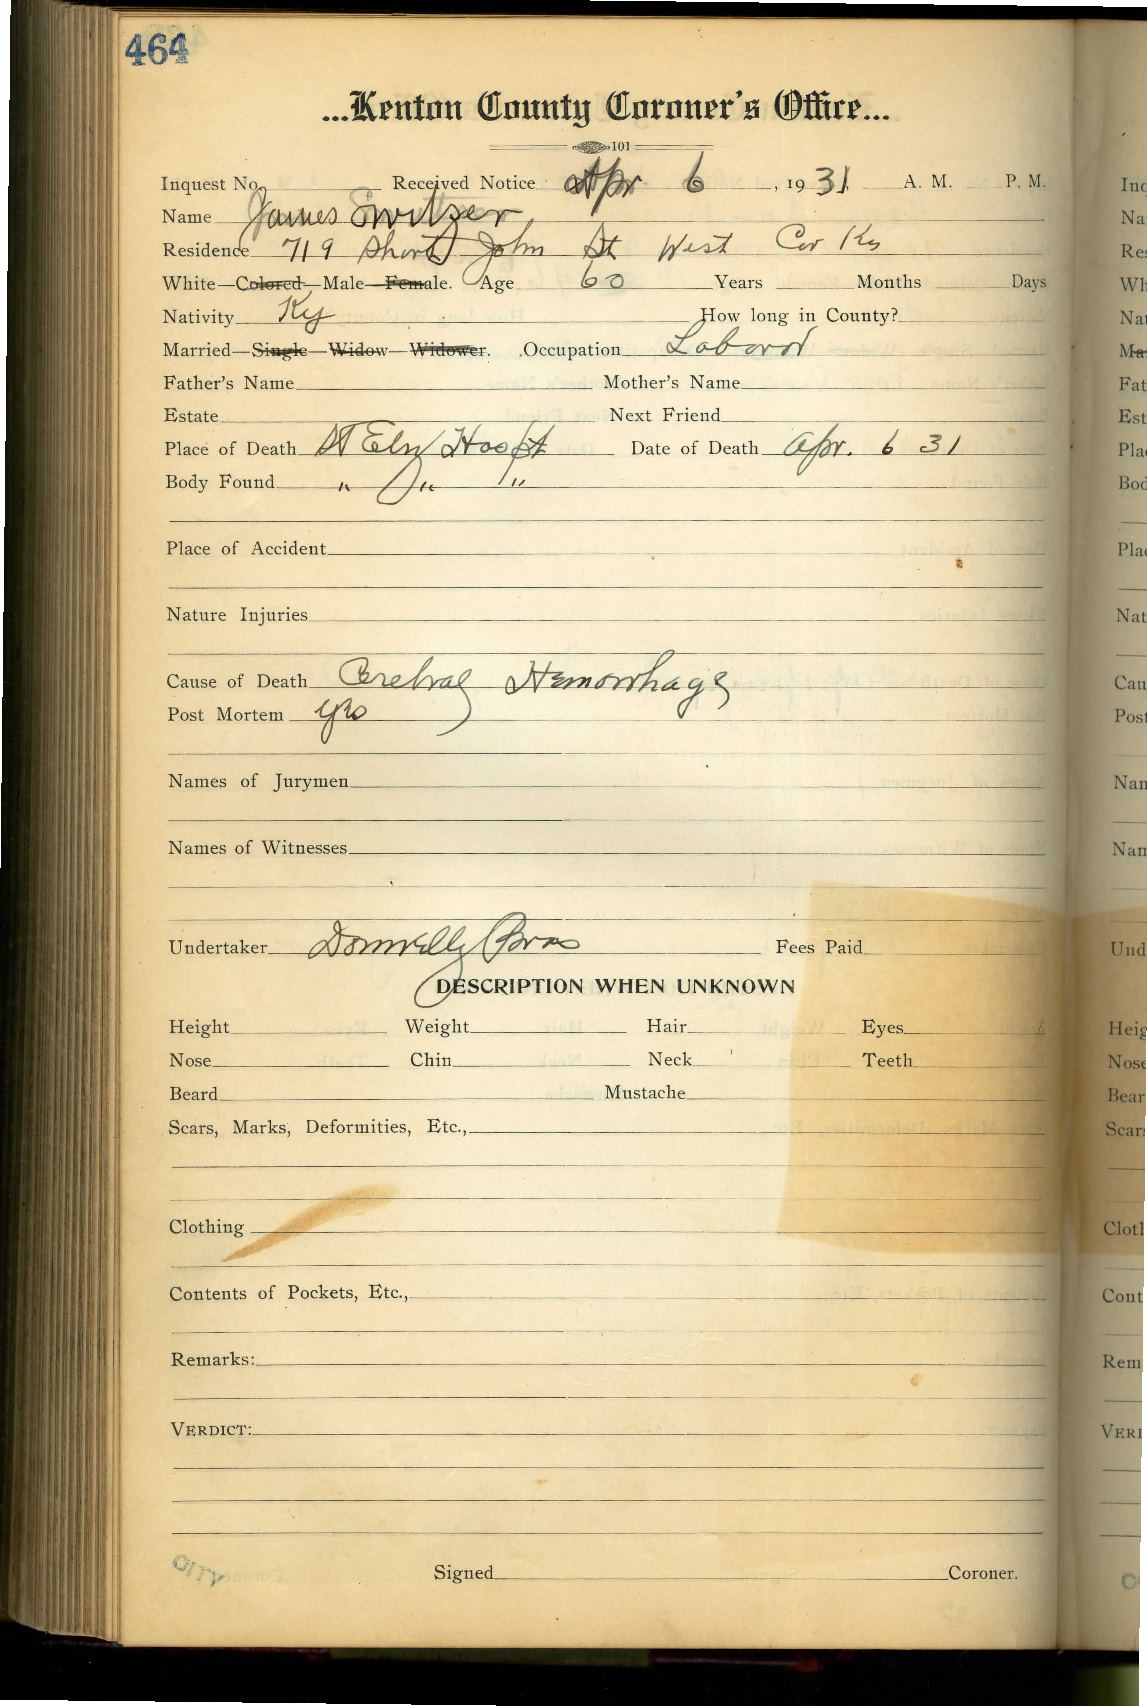 464
...Kenton County Coroner's Office...
101
Inquest No. Received Notice Apr 6, 1931 A. M. P. M.
Name James Switzer
Residence 719 Short John St West Cov Ky
White—Colored—Male—Female. Age 60 Years Months Days
Nativity Ky How long in County?
Married—Single—Widow—Widower. Occupation Labord
Father's Name Mother's Name
Estate Next Friend
Place of Death St Elz Hospt Date of Death Apr. 6 31
Body Found " " "
Place of Accident
Nature Injuries
Cause of Death Cerebral Hemorrhage
Post Mortem yes
Names of Jurymen
Names of Witnesses
Undertaker Donnelly Bros Fees Paid
DESCRIPTION WHEN UNKNOWN
Height Weight Hair Eyes
Nose Chin Neck Teeth
Beard Mustache
Scars, Marks, Deformities, Etc.,
Clothing
Contents of Pockets, Etc.,
Remarks:
VERDICT:
Signed Coroner.
CITY